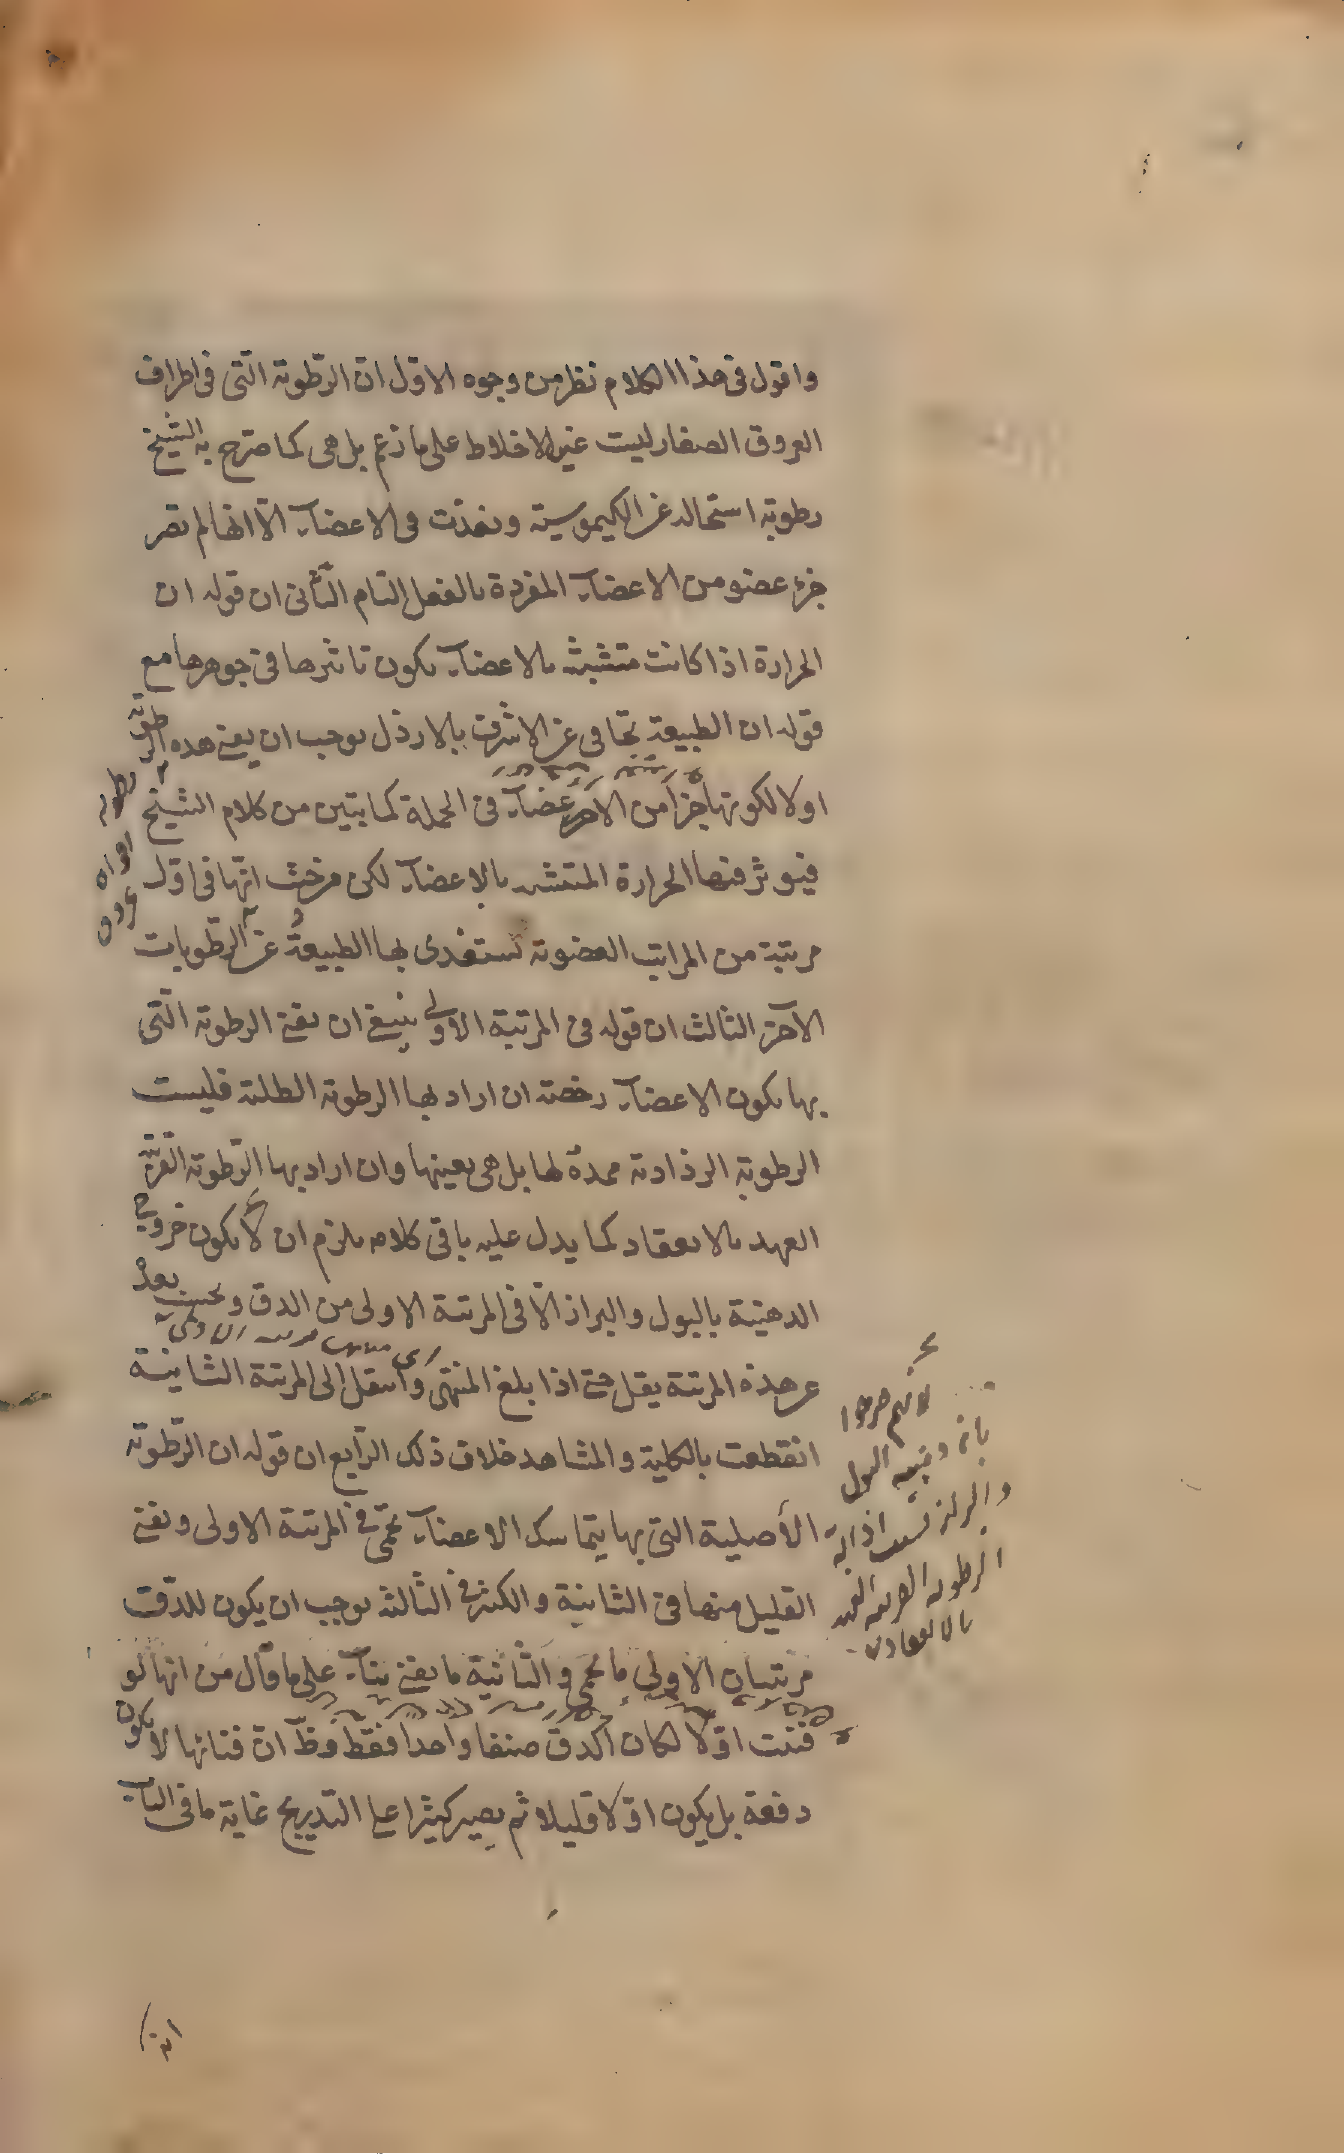 واقول فى هذا الكلام نظر من وجوه الاوّل انّ الرّطوبة الّتى فى اطراف
العروق الصغار ليست غير الاخلاط على ما زعم بل هى كما صرّح به الشّيخ
رطوبة استحالت عن الكيموسية ونفذت فى الاعضآء الّا انّها لم تصر
جزء عضو من الاعضآء المفردة بالفعل التام الثّانى ان قوله ان
الحرارة اذا كانت متشبثة بالاعضآء يكون تاثيرها فى جوهرها مع
قوله ان الطبيعة تحامى عن الاشرف بالارذل يوجب ان يفنى هذه الرّطوبة
اولا لكونها جزأ من الاعضآء فى الجملة كما تبيّن من كلام الشّيخ
فيؤثر فيها الحرارة المتشبثة بالاعضآء لكن من حيث انّها فى اوّل
مرتبة من المراتب العضوية تستفدى بها الطبيعة عن الرّطوبات
الآخر الثالث ان قوله فى المرتبة الاولى ينبغى ان يفنى الرطوبة الّتى
بها يكون الاعضآء رخصة ان اراد بها الرطوبة الطلية فليست
الرطوبة الرذاذية ممدة لها بل هى بعينها وان اراد بها الرّطوبة القريبة
العهد بالانعقاد كما يدل عليه باقى كلامه يلزم ان لا يكون خروج
الدهنية بالبول والبراز الّا فى المرتبة الاولى من الدق وبحسب بعده
عن هذه المرتبة يقل حتى اذا بلغ المنتهى وانتقل الى المرتبة الثانية
انقطعت بالكلية والمشاهد خلاف ذلك الرّابع ان قوله ان الرّطوبة
الأصلية التى بها يتماسك الاعضآء تحمى فى المرتبة الاولى ويفنى
القليل منها فى الثانية والكثير فى الثّالثة يوجب ان يكون للدّق
مرتبتان الاولى ما يحمى والثّانية ما يفنى بنآء على ما قال من انها لو
فنيت اوّلا لكان الدق صنفا واحدا فقط وظ انّ فنائها لا يكون
دفعة بل يكون اوّلا قليلا ثم يصير كثيرا على التّدريج غاية ما فى الباب
رطوبة
افواه
عروق
اى منتهى مرتبة الاولى
لانهم صرحوا
البول